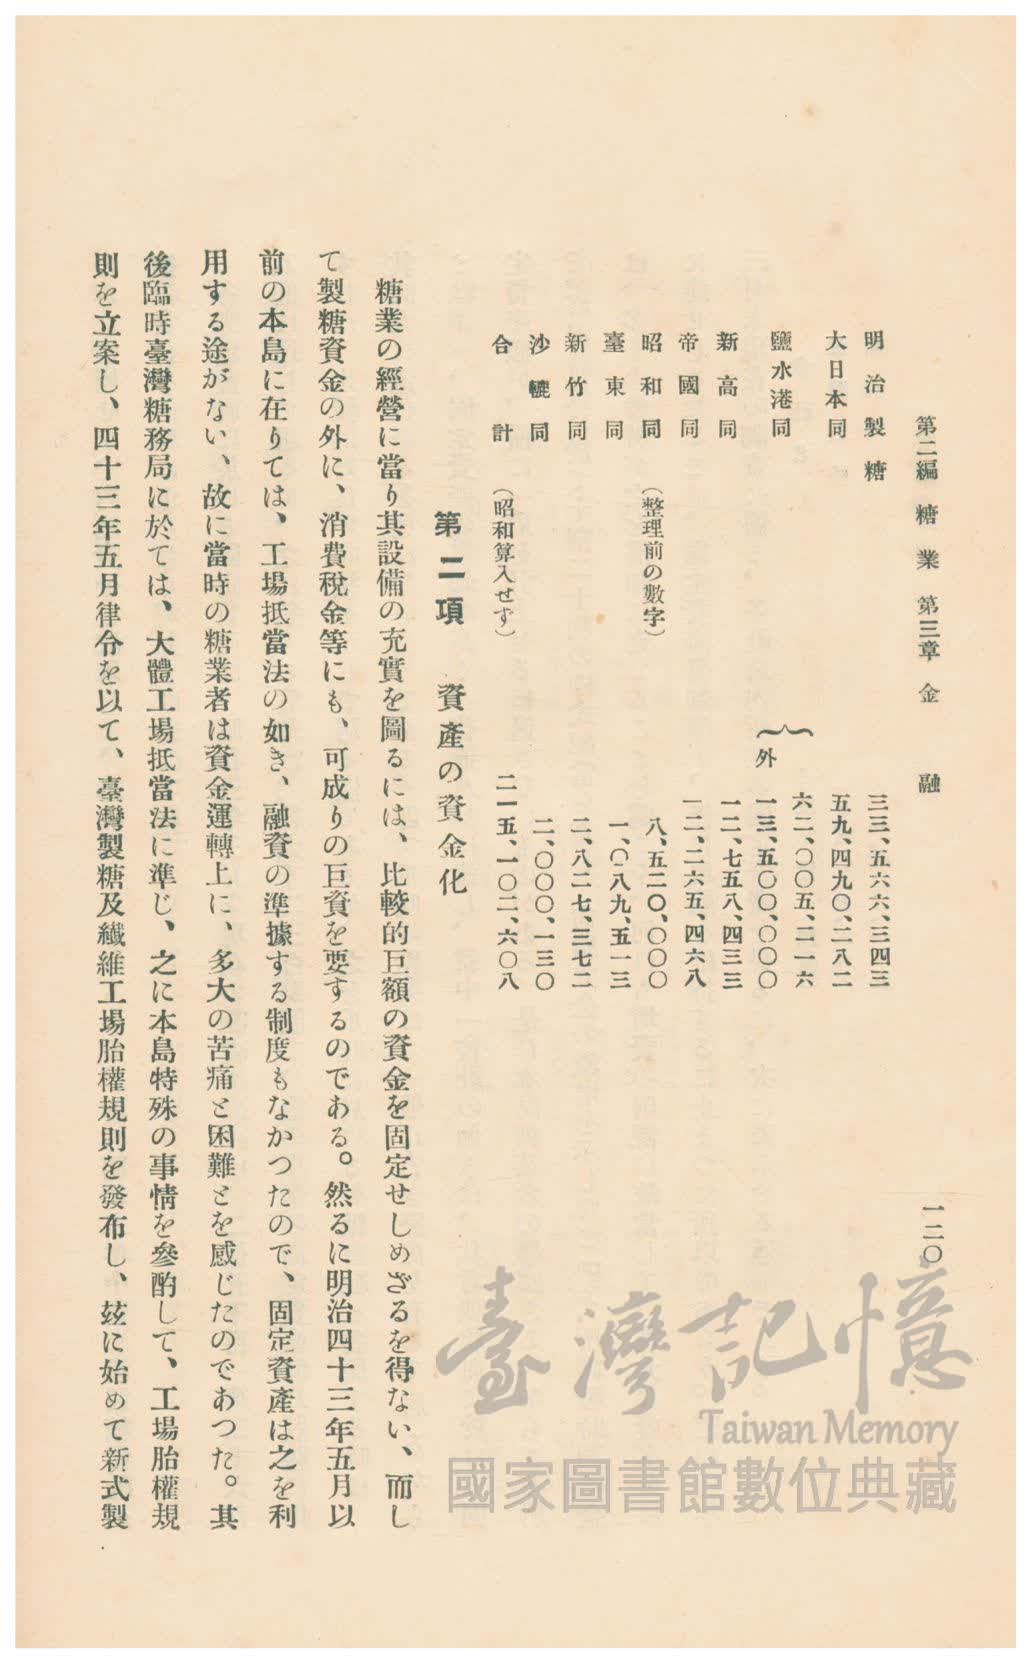 第二編 糖業 第三章 金融 一二〇
明治製糖 三三、五六六、三四三
大日本同 五九、四九〇、二八二
鹽水港同 六二、〇〇五、二一六
外 一三、五〇〇、〇〇〇
新高同 一二、七五八、四三三
帝國同 一二、二六五、四六八
昭和同 (整理前の數字) 八、五二〇、〇〇〇
臺東同 一、〇八九、五一三
新竹同 二、八二七、三七二
沙轆同 二、〇〇〇、一三〇
合計 (昭和算入せす) 二一五、一〇二、六〇八
第二項 資產の資金化
糖業の經營に當り其設備の充實を圖るには、比較的巨額の資金を固定せしめざるを得ない、而し
て製糖資金の外に、消費稅金等にも、可成りの巨資を要するのである。然るに明治四十三年五月以
前の本島に在りては、工場抵當法の如き、融資の準據する制度もなかつたので、固定資產は之を利
用する途がない、故に當時の糖業者は資金運轉上に、多大の苦痛と困難とを感じたのであつた。其
後臨時臺灣糖務局に於ては、大體工場抵當法に準じ、之に本島特殊の事情を參酌して、工場胎權規
則を立案し、四十三年五月律令を以て、臺灣製糖及纖維工場胎權規則を發布し、玆に始めて新式製
臺灣記憶
Taiwan Memory
國家圖書館數位典藏